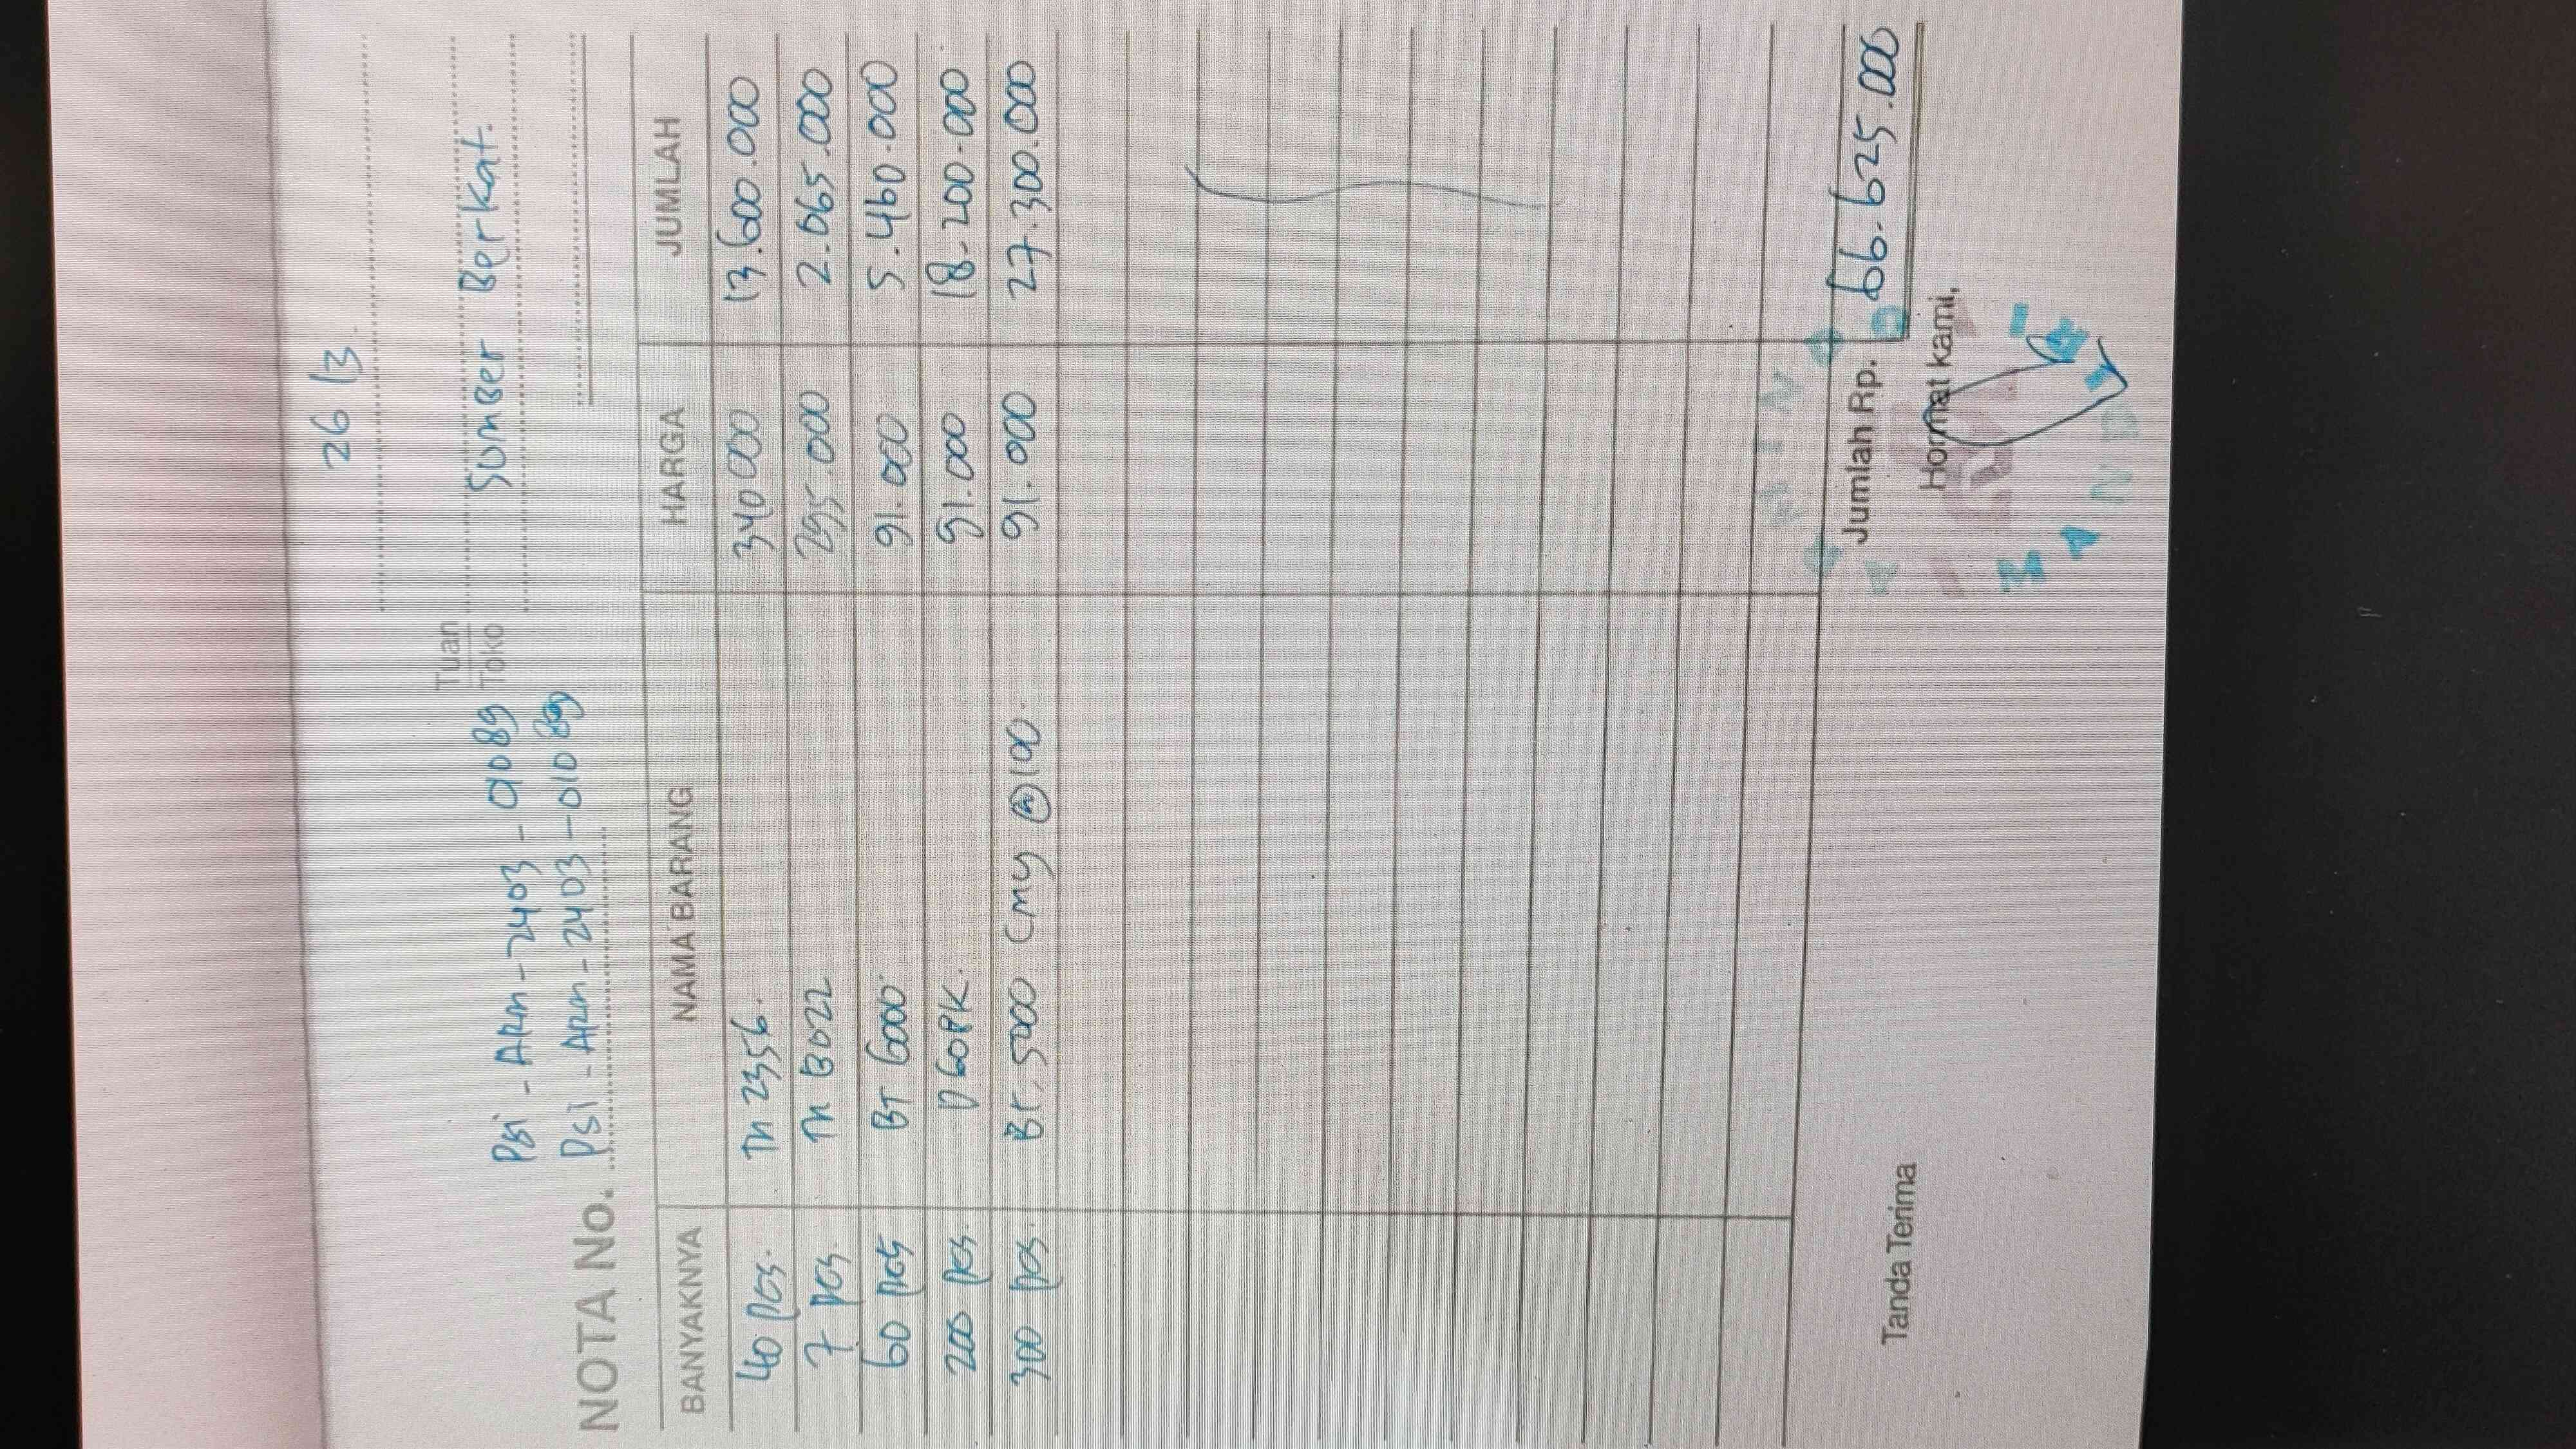 26/3.
Tuan
Toko
Sumber Berkat.
Psi - Arm - 2403 - 01089
NOTA No. Psi - Arm - 2403 - 01089
BANYAKNYA NAMA BARANG HARGA JUMLAH
40 pcs. Tn 2356. 340 000 13.600.000
7 pcs. Tn B022 295.000 2.065.000
60 pcs BT 6000 91.000 5.460.000
200 pcs. D60BK. 91.000 18.200.000
300 pcs. BT. 5000 Cmy @100. 91.000 27.300.000
Jumlah Rp. 66.625.000
Tanda Terima Hormat kami,